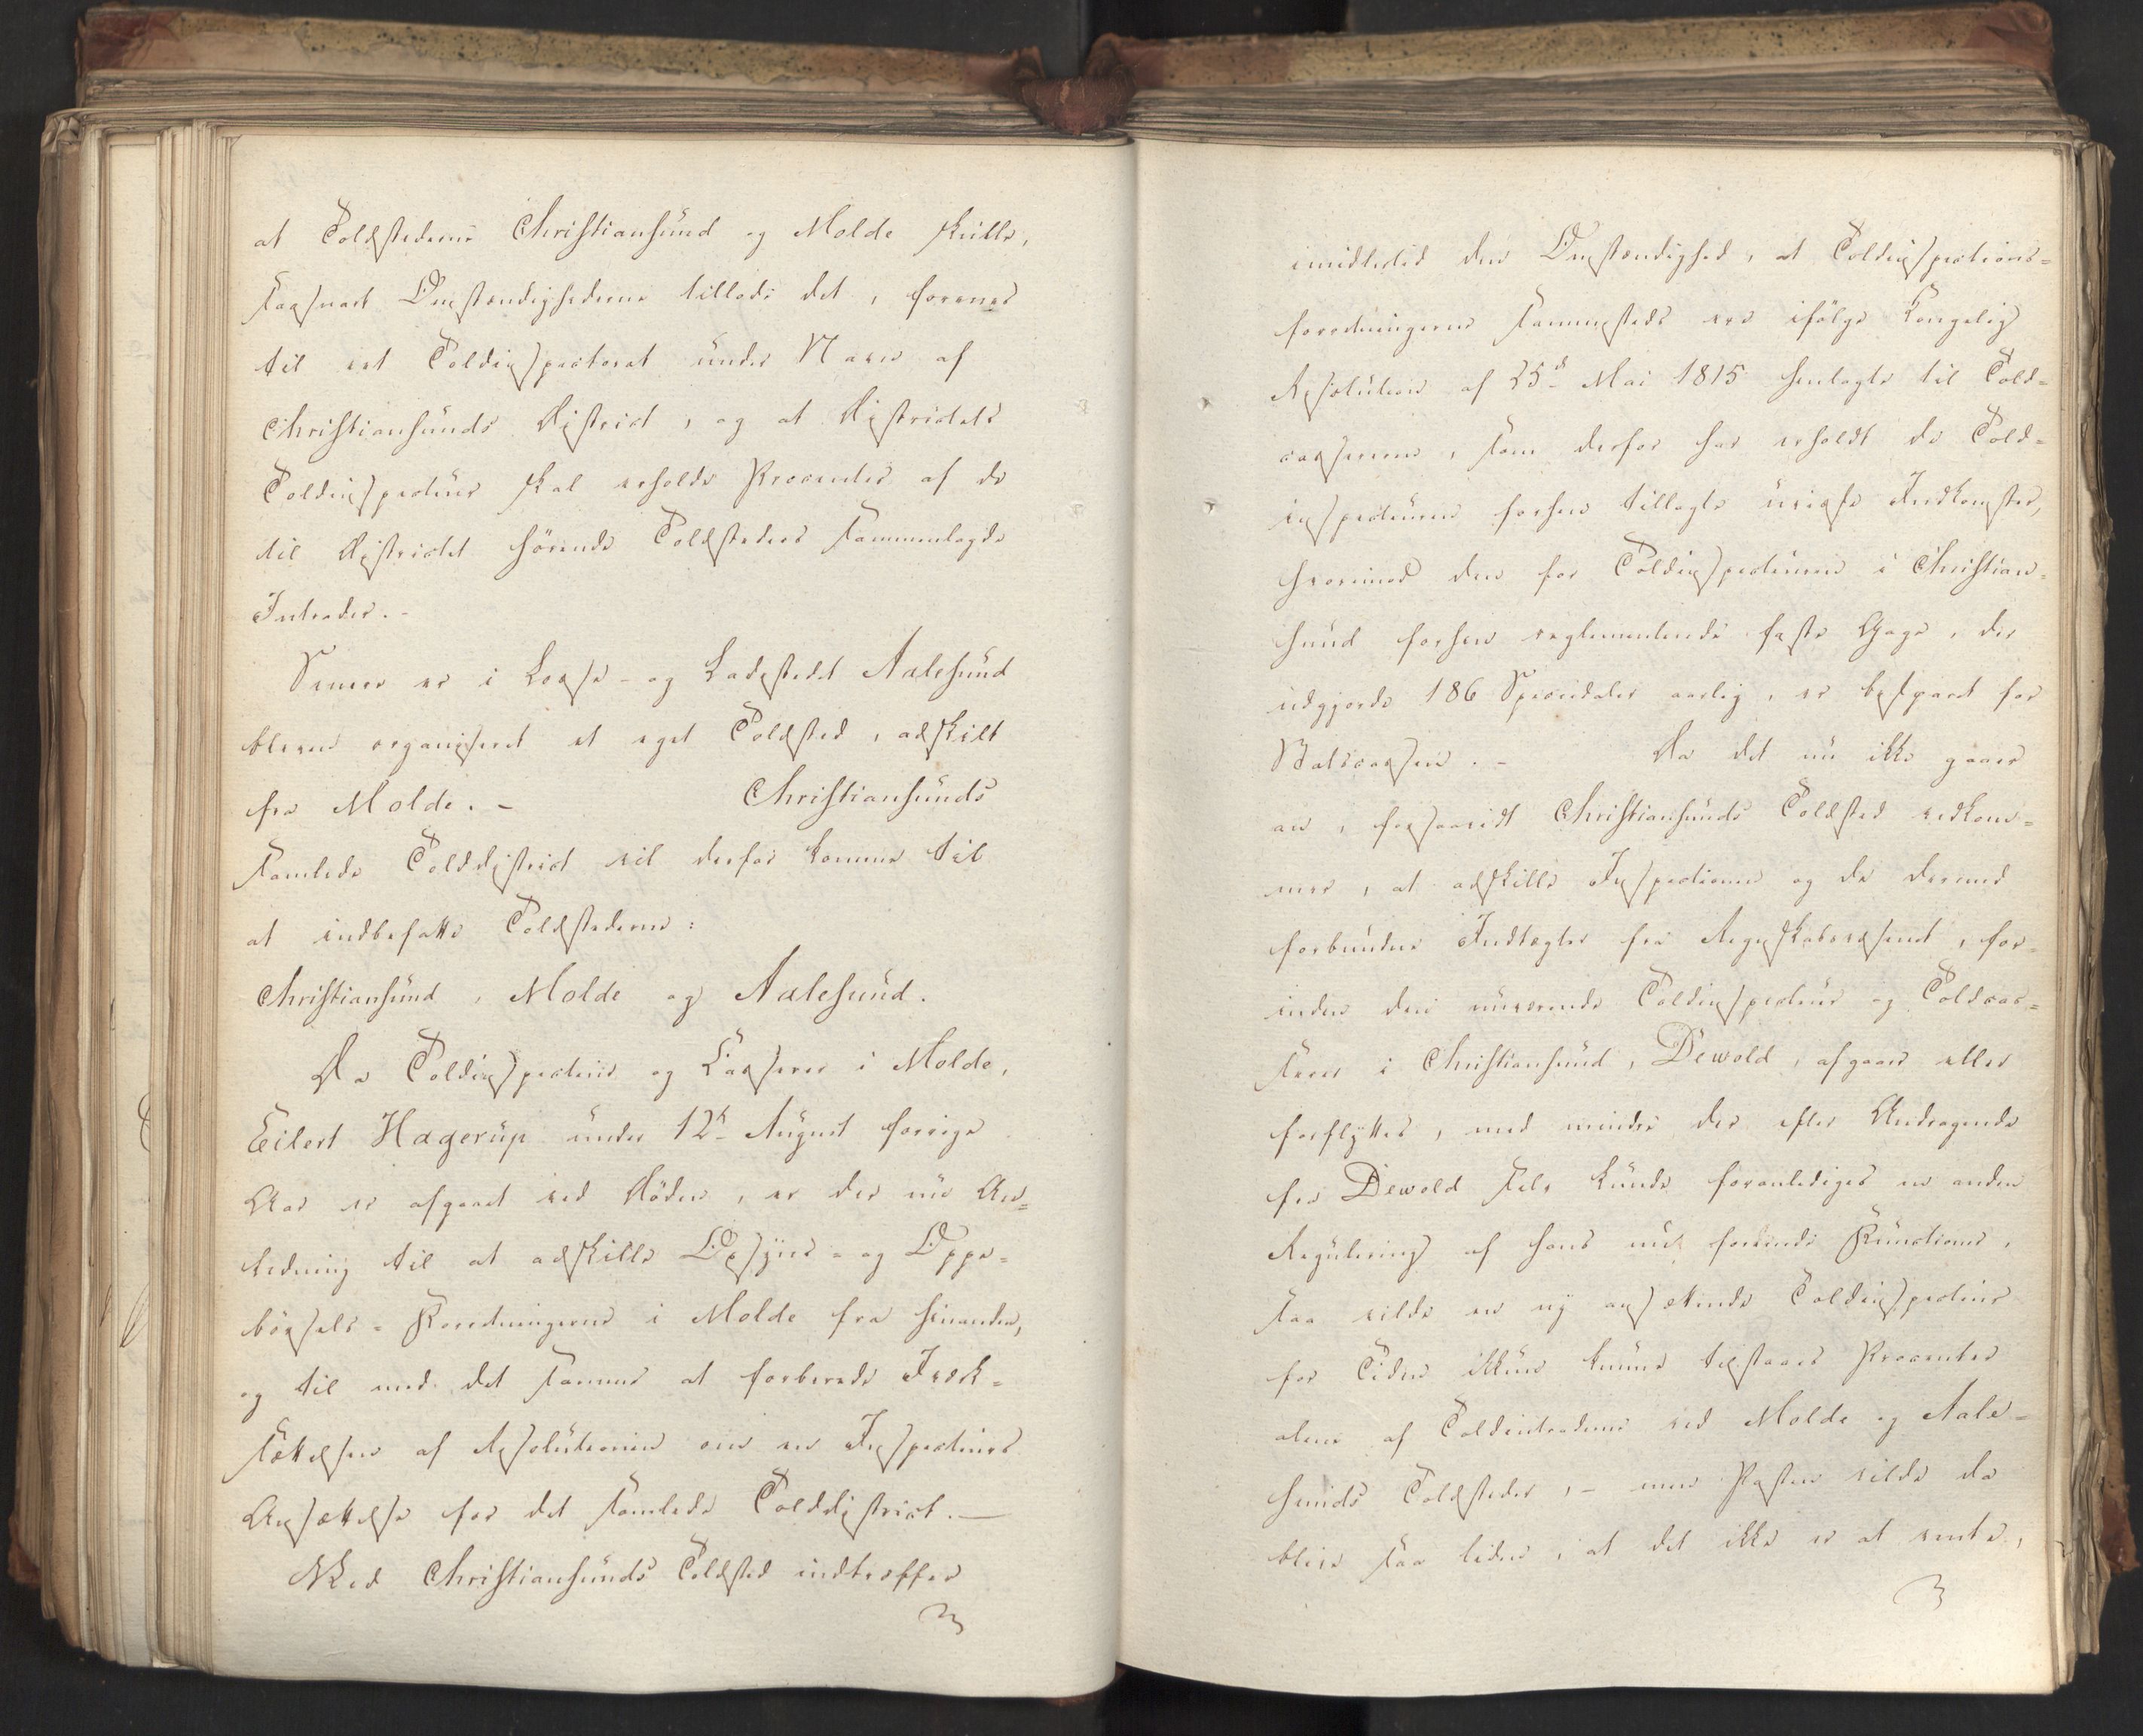 at Toldstederne Christiansund og Molde skulle,
saasnart Omstændighederne tillode det, forenes
til eet Toldinspectorat under Navn af
Christiansunds District, og at Districtets
Toldinspecteur skal erholde Procenter af de
til Districtet hørende Toldsteders sammenlagde
Intrader. -
Senere er i Losse- og Ladestedet Aalesund
bleven organiseret et eget Toldsted, adskilt
fra Molde. - Christiansunds
samlede Tolddistrict vil derfor komme til
at indbefatte Toldstederne:
Christiansund, Molde og Aalesund.
Da Toldinspecteur og Casserer i Molde,
Eilert Hagerup under 12te August forrige
Aar er afgaaet ved Döden, er der nu An=
ledning til at adskille Opsyns- og Oppe=
börsels-Forretningerne i Molde fra hinanden,
og til med det samme at forberede Iværk=
sættelsen af Resolutionen om en Inspecteurs
Ansættelse for det samlede Tolddistrict. —
Ved Christiansunds Toldsted indtræffer
imidlertid den Omstændighed, at Toldinspections=
forretningerne sammesteds ere ifölge Kongelig
Resolution af 25de Mai 1815 henlagte til Told=
casereren, som derfor har erholdt de Told=
inspecteuren forhen tillagte uvisse Indkomster,
hvorimod den for Toldinspecteuren i Christian=
sund forhen reglementerede faste Gage, der
udgjorde 186 Speciedaler aarlig, er besparet for
Statscassen. - Da det nu ikke gaaer
an, forsaavidt Christiansunds Toldsted vedkom=
mer, at adskille Inspectionen og de dermed
forbundne Indtægter fra Regnskabsvæsenet, for=
inden den nuværende Toldinspecteur og Toldcas=
serer i Christiansund, Dewold, afgaaer eller
forflyttes, med mindre der efter Andragende
fra Dewold selv kunde foranlediges en anden
Regulering af hans nu forenede Functioner,
saa vilde en ny ansættende Toldinspecteur
for Tiden ikkun kunne tilstaaes Procenter
alene af Toldintraderne ved Molde og Aale=
sunds Toldsteder, - men Posten vilde da
blive saa liden, at det ikke er at vente,